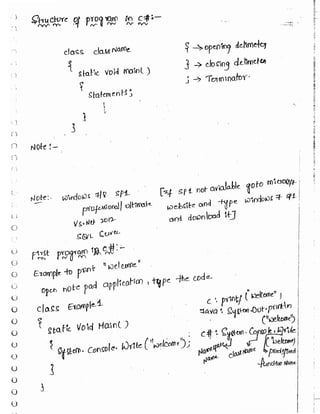 Structure of program in C#:-
class className
{
static void main( )
{
Statements;
}
}
{ → opening delimeter
} → closing delimeter
; → Terminator.
Note:-
Note:- windows 7/8 SP1
professional/ultimate
VS.Net 2012
SQL
[If SP1 not available goto
website and type windows 7 SP1
and download it]
First program in C#:-
Example to print "welcome"
open note pad application, type the code.
class Example1
{
static void Main( )
{
System.Console.Write("welcome");
}
}
C : printf("welcome")
Java : System.out.println
("welcome")
C# : System.Console.Write
("welcome")
Namespace
Name
class Name
predefined
function Name